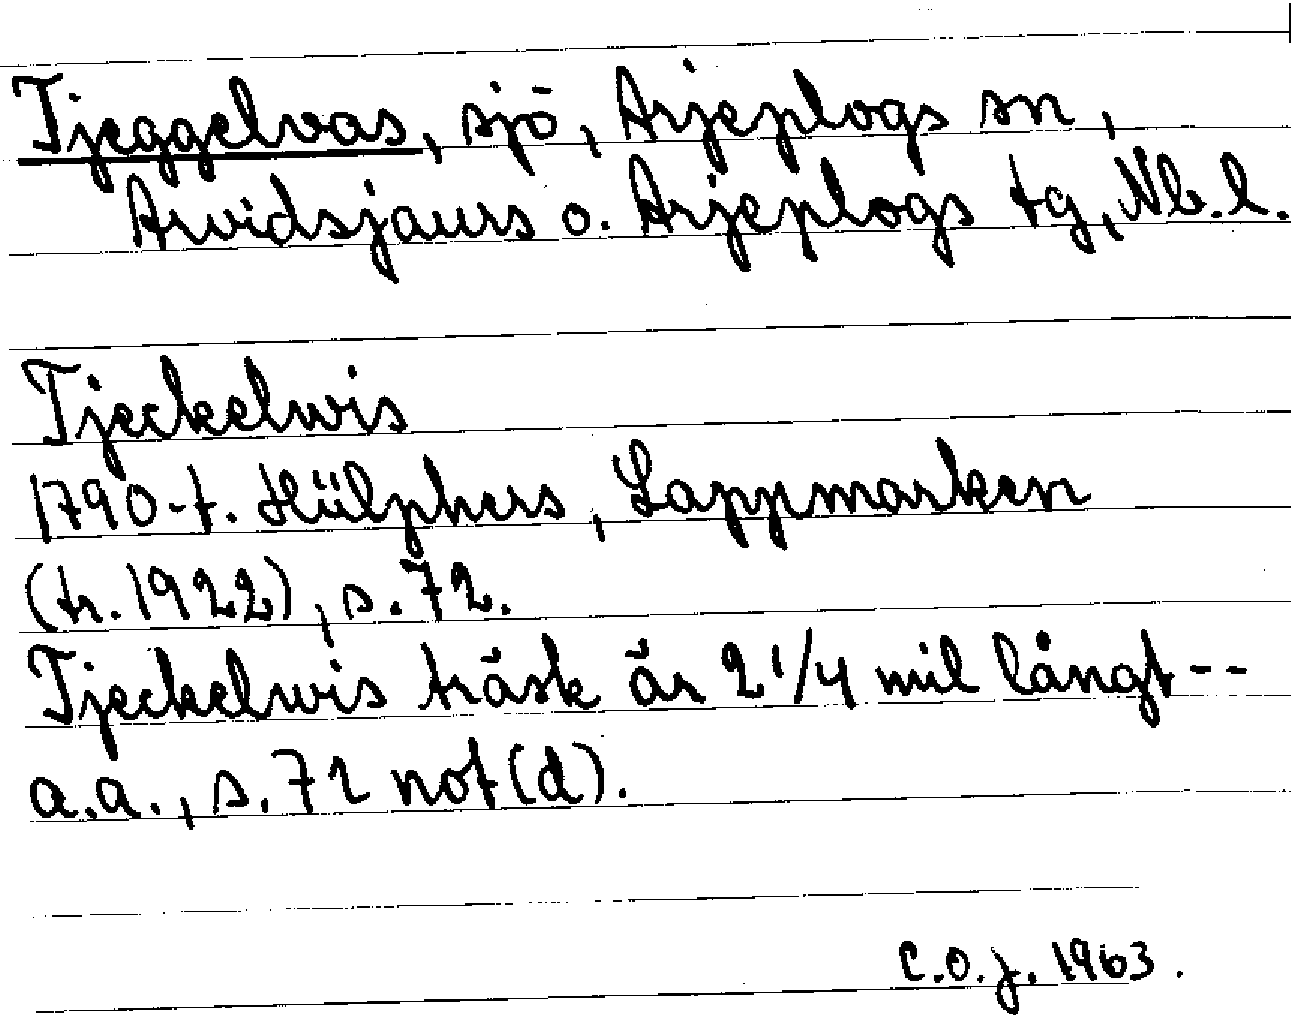 Tjeggelvas, sjö, Arjeplogs sn,
Arvidsjaurs o. Arjeplogs tg, Nb.l.
Tjeckelwis
1790-t. Hülphers, Lappmarken
(tr. 1922), s. 72.
Tjeckelwis träsk är 2 1/4 mil långt --
a.a., s. 72 not (d).
C.O.J. 1963.